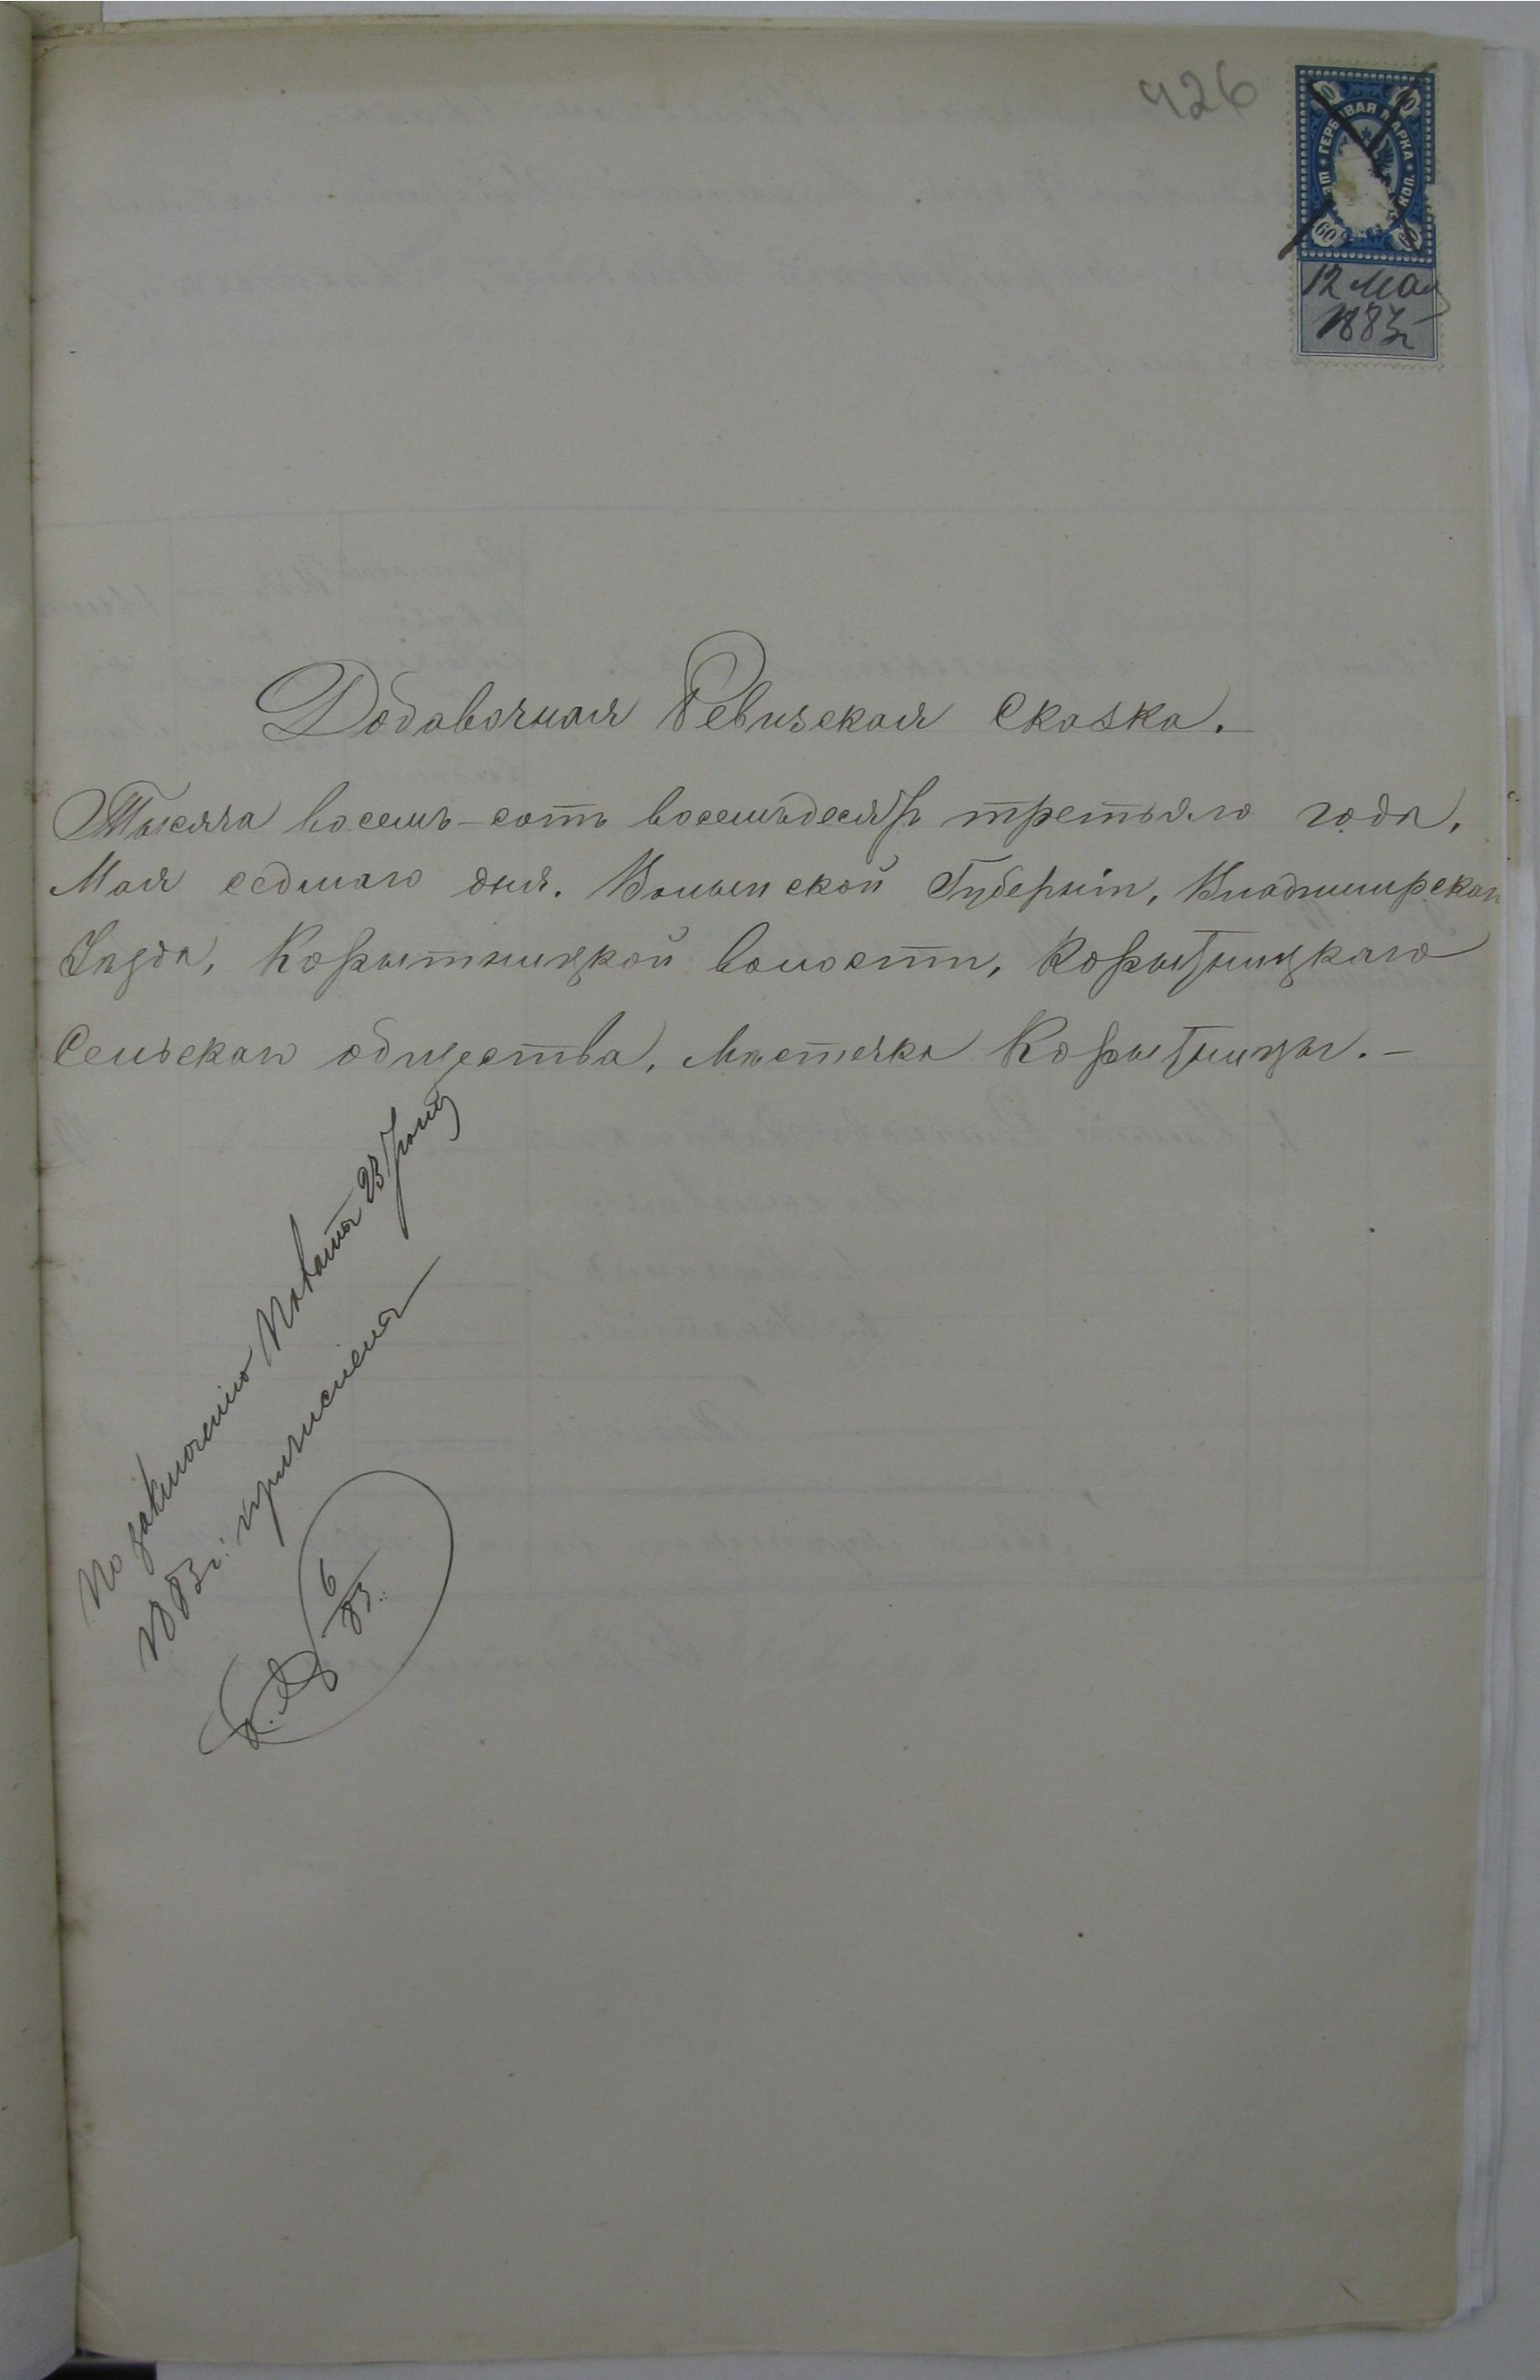 426
60 60
ГЕРБОВАЯ МАРКА
КОП.
60 60
12 Мая
1883 г.
Добавочная Ревизская Сказка.
Тысяча восемь-сотъ восемьдесятъ третьяго года,
Мая седмаго дня. Волынской Губерніи, Владимірскаго
Уѣзда, Корытницкой волости, Корытницкаго
Сельскаго общества, Мѣстечка Корытницы. –
По заключенію Палаты 23 Іюня
1883 г. причислена
6/83.